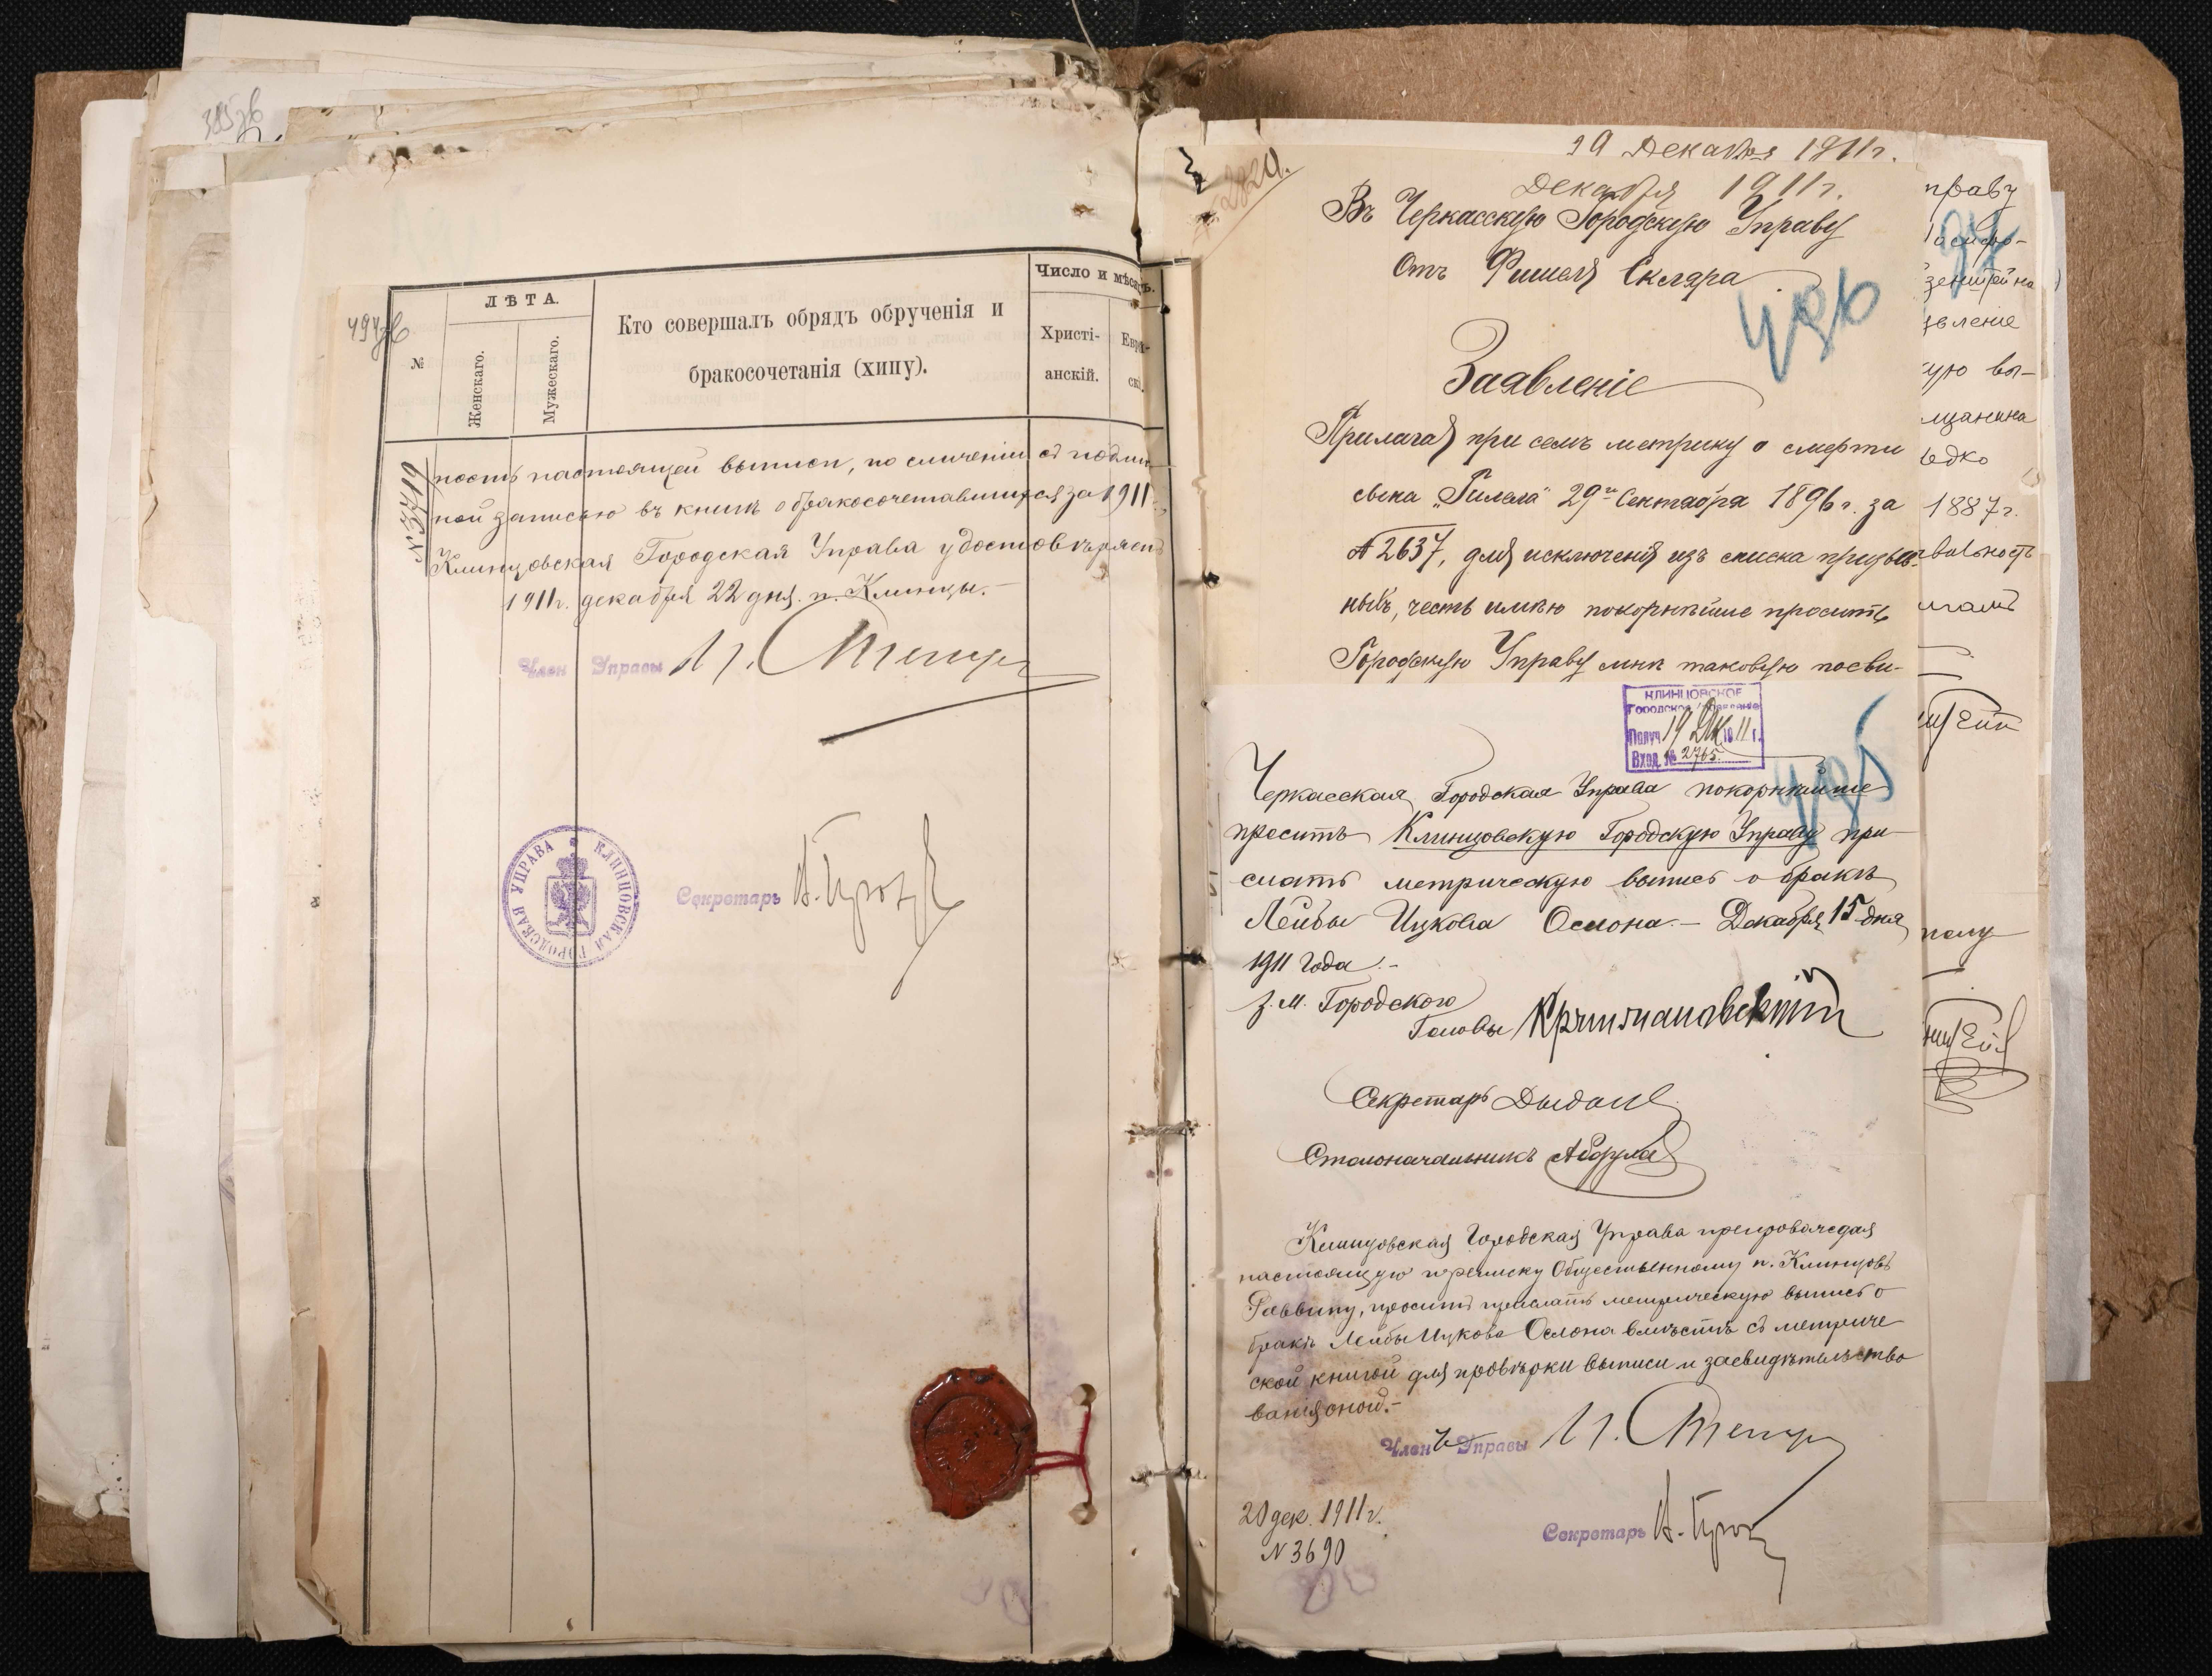 494зв
№
ЛѢТА.
Женскаго.
Мужескаго.
Кто совершалъ обрядъ обрученія и
бракосочетанія (хипу).
Число и мѣсяцъ.
Христі-
анскій.
Еврей-
скі
ность настоящей выписи, по сличеніи съ подлин-
ной записью въ книгѣ о бракосочетавшихся за 1911 г.,
Клинцовская Городская Управа удостовѣряетъ
1911г. декабря 22 дня. п. Клинцы.-
Членъ Управы
КЛИНЦОВСКАЯ ГОРОДСКАЯ УПРАВА
Секретарь
19 Декабря 1911г.
Декабря 1911г.
Въ Черкасскую Городскую Управу
Отъ Фишеля Скляра
496
Заявленіе
Прилагая при семъ метрику о смерти
сына „Гилеля" 29го Сентября 1896 г. за
№ 2637, для исключенія изъ списка призыв-
ныхъ, честь имѣю покорнѣйше просить
Городскую Управу мнѣ таковую
КЛИНЦОВСКОЕ
Городское Управленіе
Получ. 19 Дек 1911 г.
Вход. № 2765.
495
Черкасская Городская Управа покорнѣйше
проситъ Клинцовскую Городскую Управу при-
слать метрическую выпись о бракѣ
Лейбы Ицкова Ослона.- Декабря 15 дня
1911 года.-
з.м. Городского
Головы
Секретарь
Столоначальникъ
Клинцовская Городская Управа препровождая
настоящую переписку Общественному п. Клинцовъ
Раввину, проситъ прислать метрическую выпись о
бракѣ Лейбы Ицкова Ослона вмѣстѣ съ метриче-
ской книгой для провѣрки выписи и засвидѣтельство-
ванія оной.-
Членъ Управы
20 дек. 1911г.
N 3690
Секретарь
праву
зенштейна
явленіе
ую вы-
щанина
1887г.